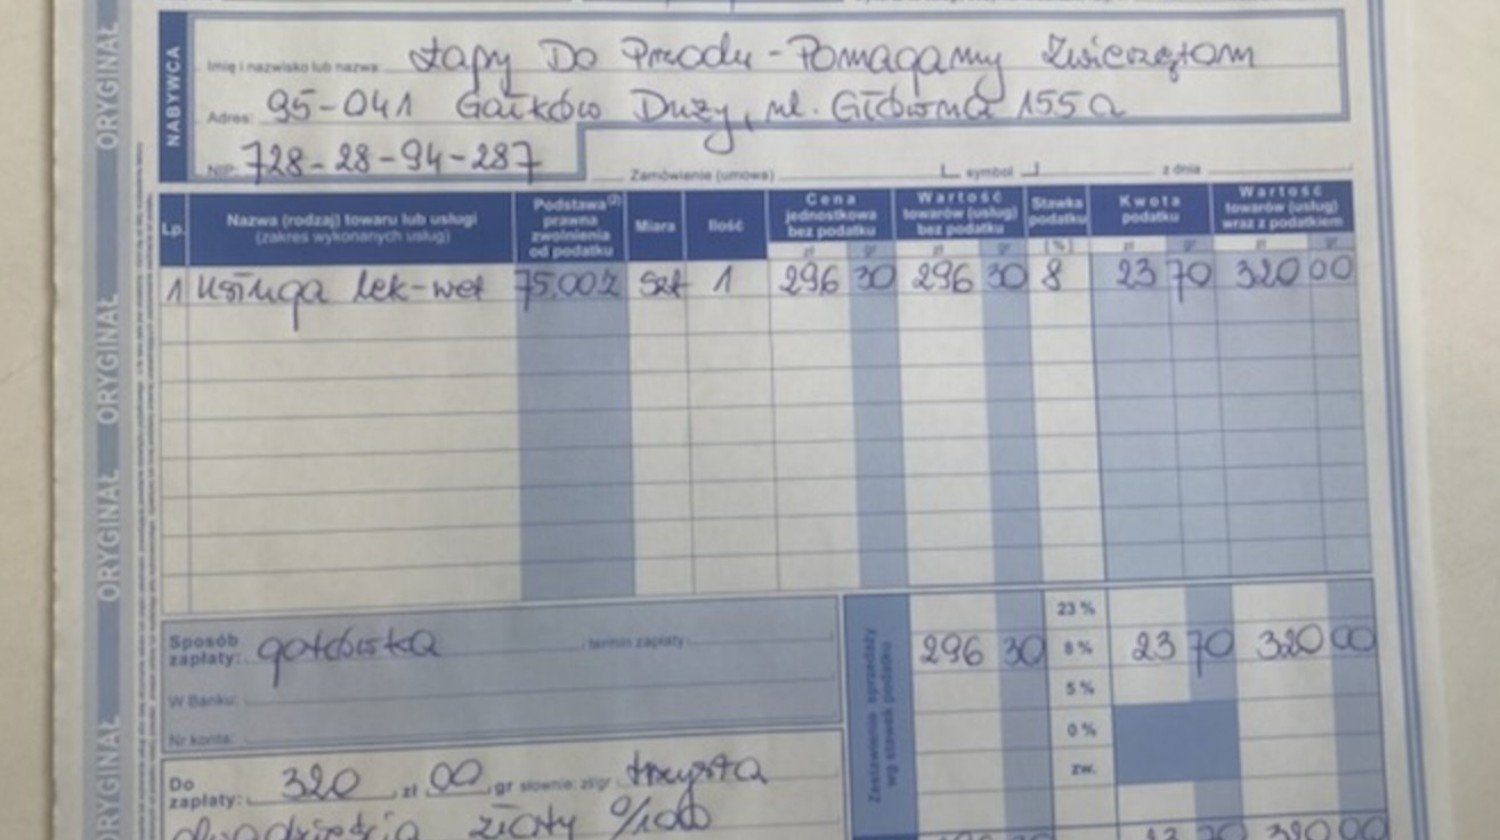 NABYWCA
Imię i nazwisko lub nazwa: Łapy Do Przodu - Pomagamy Zwierzętom
Adres: 95-041 Gałków Duży, ul. Główna 155a
NIP: 728-28-94-287
Zamówienie (umowa) symbol z dnia
Lp. Nazwa (rodzaj) towaru lub usługi (zakres wykonanych usług) Podstawa(2) prawna zwolnienia od podatku Miara Ilość Cena jednostkowa bez podatku Wartość towarów (usług) bez podatku Stawka podatku Kwota podatku Wartość towarów (usług) wraz z podatkiem
zł gr zł gr [%] zł gr zł gr
1 usługa lek-wet 75.00.Z szt 1 296 30 296 30 8 23 70 320 00
23 %
Sposób zapłaty: gotówka termin zapłaty 296 30 8 % 23 70 320 00
5 %
W Banku:
0 %
Nr konta:
zw.
Zestawienie sprzedaży wg stawek podatku
Do zapłaty: 320 zł 00 gr słownie: zł/gr trzysta
dwadzieścia złoty 0/100
23 70 320 00
ORYGINAŁ
ORYGINAŁ
ORYGINAŁ
ORYGINAŁ